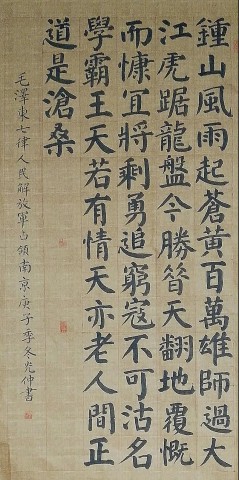 鍾山風雨起蒼黃百萬雄師過大
江虎踞龍盤今勝昔天翻地覆慨
而慷宜將剩勇追窮寇不可沽名
學霸王天若有情天亦老人間正
道是滄桑
毛澤東七律人民解放軍占領南京庚子季冬光仲書